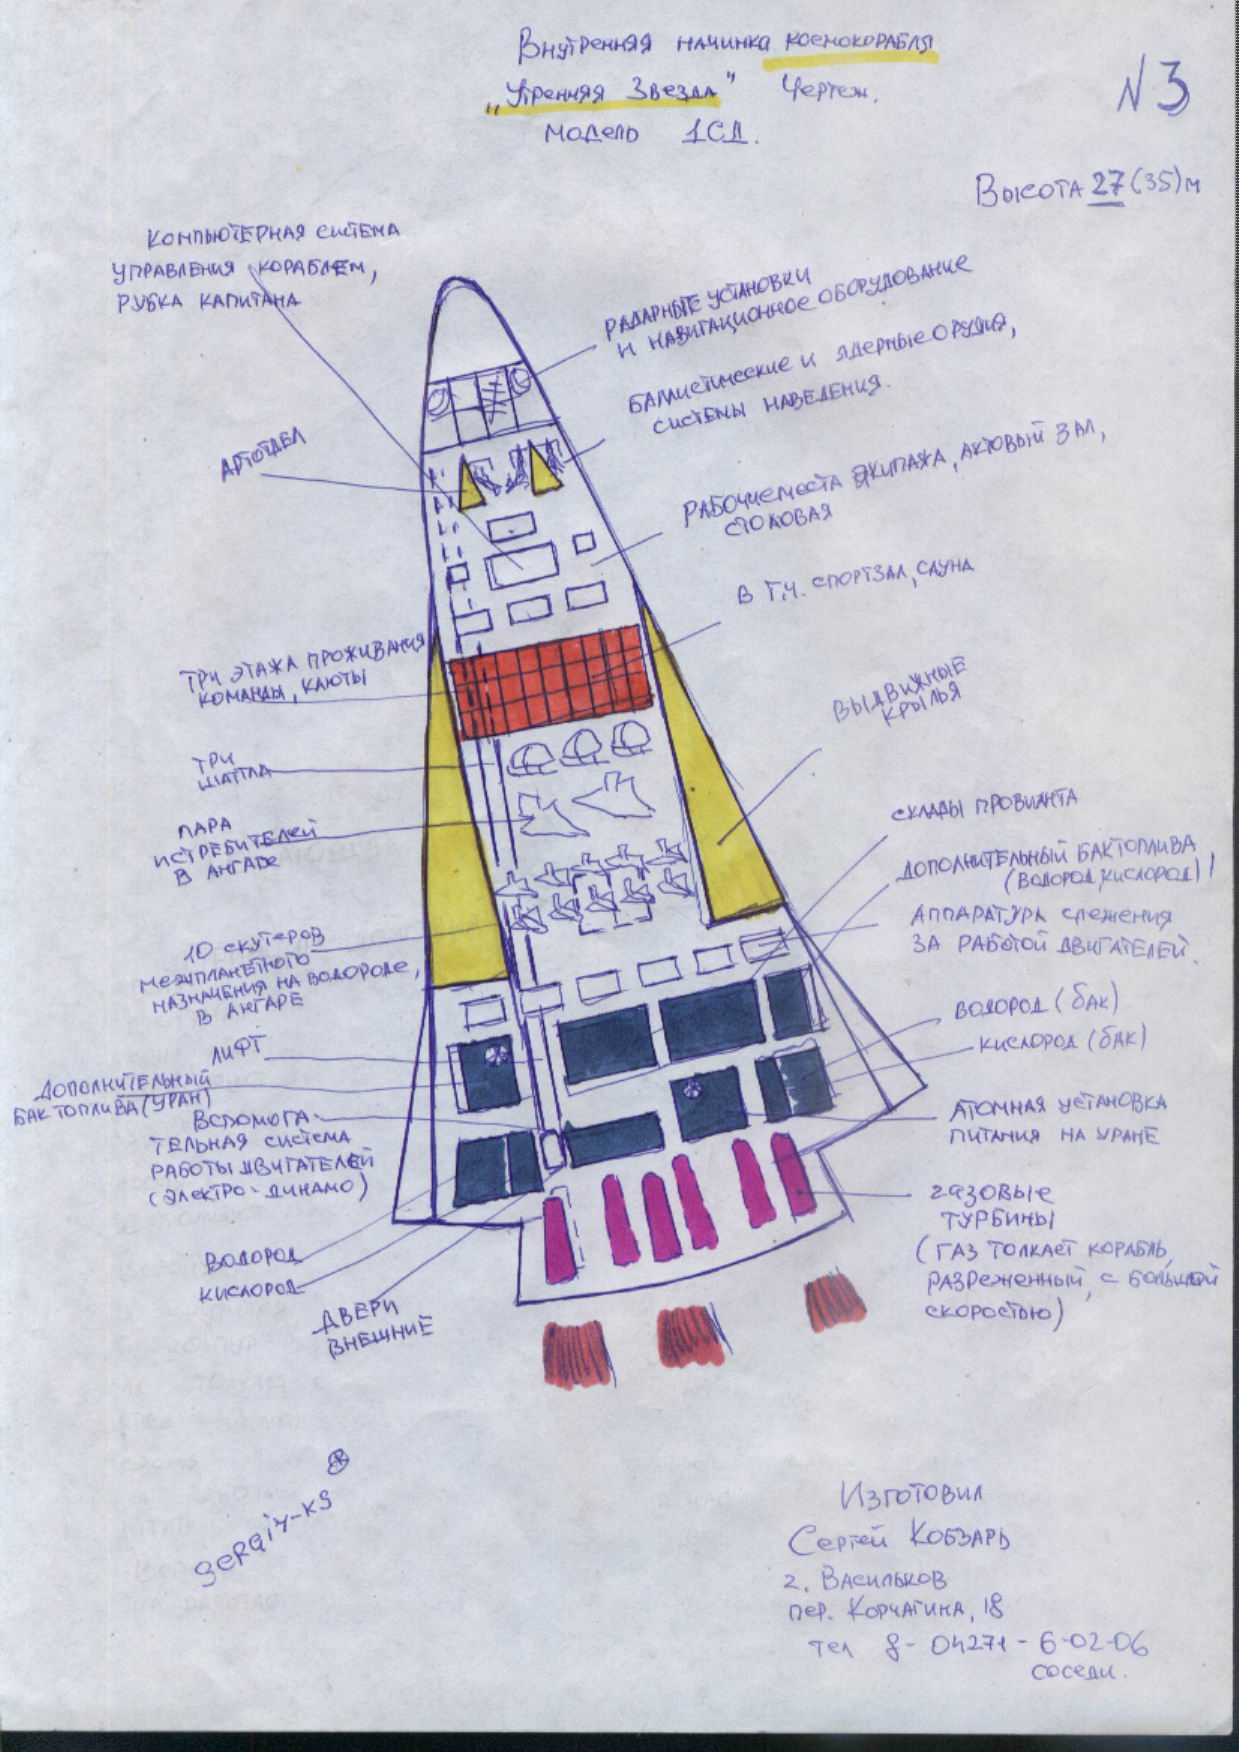 Внутренняя начинка космокорабля
„Утренняя Звезда" Чертеж.
модель 1СД.
N 3
Высота 27 (35) м
КОМПЬЮТЕРНАЯ СИСТЕМА
УПРАВЛЕНИЯ КОРАБЛЕМ,
РУБКА КАПИТАНА
РАДАРНЫЕ УСТАНОВКИ
И НАВИГАЦИОННОЕ ОБОРУДОВАНИЕ
БАЛЛИСТИЧЕСКИЕ И ЯДЕРНЫЕ ОРУДИЯ,
СИСТЕМЫ НАВЕДЕНИЯ.
АРТОТДЕЛ
РАБОЧИЕ МЕСТА ЭКИПАЖА, АКТОВЫЙ ЗАЛ,
СТОЛОВАЯ
В Т.Ч. СПОРТЗАЛ, САУНА
ТРИ ЭТАЖА ПРОЖИВАНИЯ
КОМАНДЫ, КАЮТЫ
ВЫДВИЖНЫЕ
КРЫЛЬЯ
ТРИ
ШАТТЛА
ПАРА
ИСТРЕБИТЕЛЕЙ
В АНГАРЕ
СКЛАДЫ ПРОВИАНТА
ДОПОЛНИТЕЛЬНЫЙ БАК ТОПЛИВА
(ВОДОРОД, КИСЛОРОД)
АППАРАТУРА СЛЕЖЕНИЯ
ЗА РАБОТОЙ ДВИГАТЕЛЕЙ.
10 СКУТЕРОВ
МЕЖПЛАНЕТНОГО
НАЗНАЧЕНИЯ НА ВОДОРОДЕ,
В АНГАРЕ
ЛИФТ
ДОПОЛНИТЕЛЬНЫЙ
БАК ТОПЛИВА (УРАН)
ВОДОРОД (БАК)
КИСЛОРОД (БАК)
ВСПОМОГА-
ТЕЛЬНАЯ СИСТЕМА
РАБОТЫ ДВИГАТЕЛЕЙ
(ЭЛЕКТРО-ДИНАМО)
АТОМНАЯ УСТАНОВКА
ПИТАНИЯ НА УРАНЕ
ГАЗОВЫЕ
ТУРБИНЫ
(ГАЗ ТОЛКАЕТ КОРАБЛЬ,
РАЗРЕЖЕННЫЙ, С БОЛЬШОЙ
СКОРОСТЬЮ)
ВОДОРОД
КИСЛОРОД
ДВЕРИ
ВНЕШНИЕ
SERGIY-KS
Изготовил
Сергей Кобзарь
г. Васильков
пер. Корчагина, 18
тел 8-04271-6-02-06
соседи.